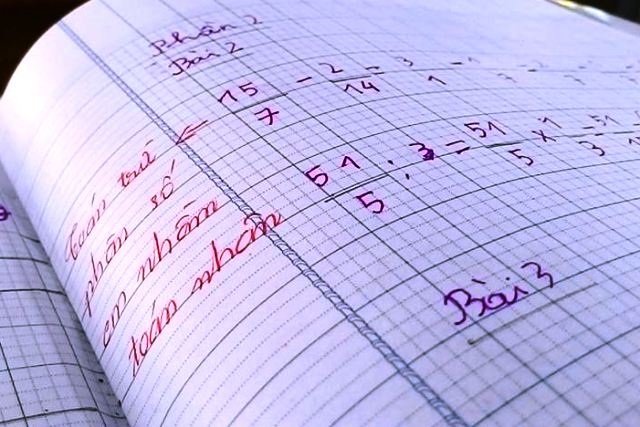 Phần 2
Bài 2
15/7 - 2/14 = 3/1 - 1
51/5 : 3 = 51/5 × 1 51/3
Toán trừ
phân số
em nhầm
toán nhân
Bài 3